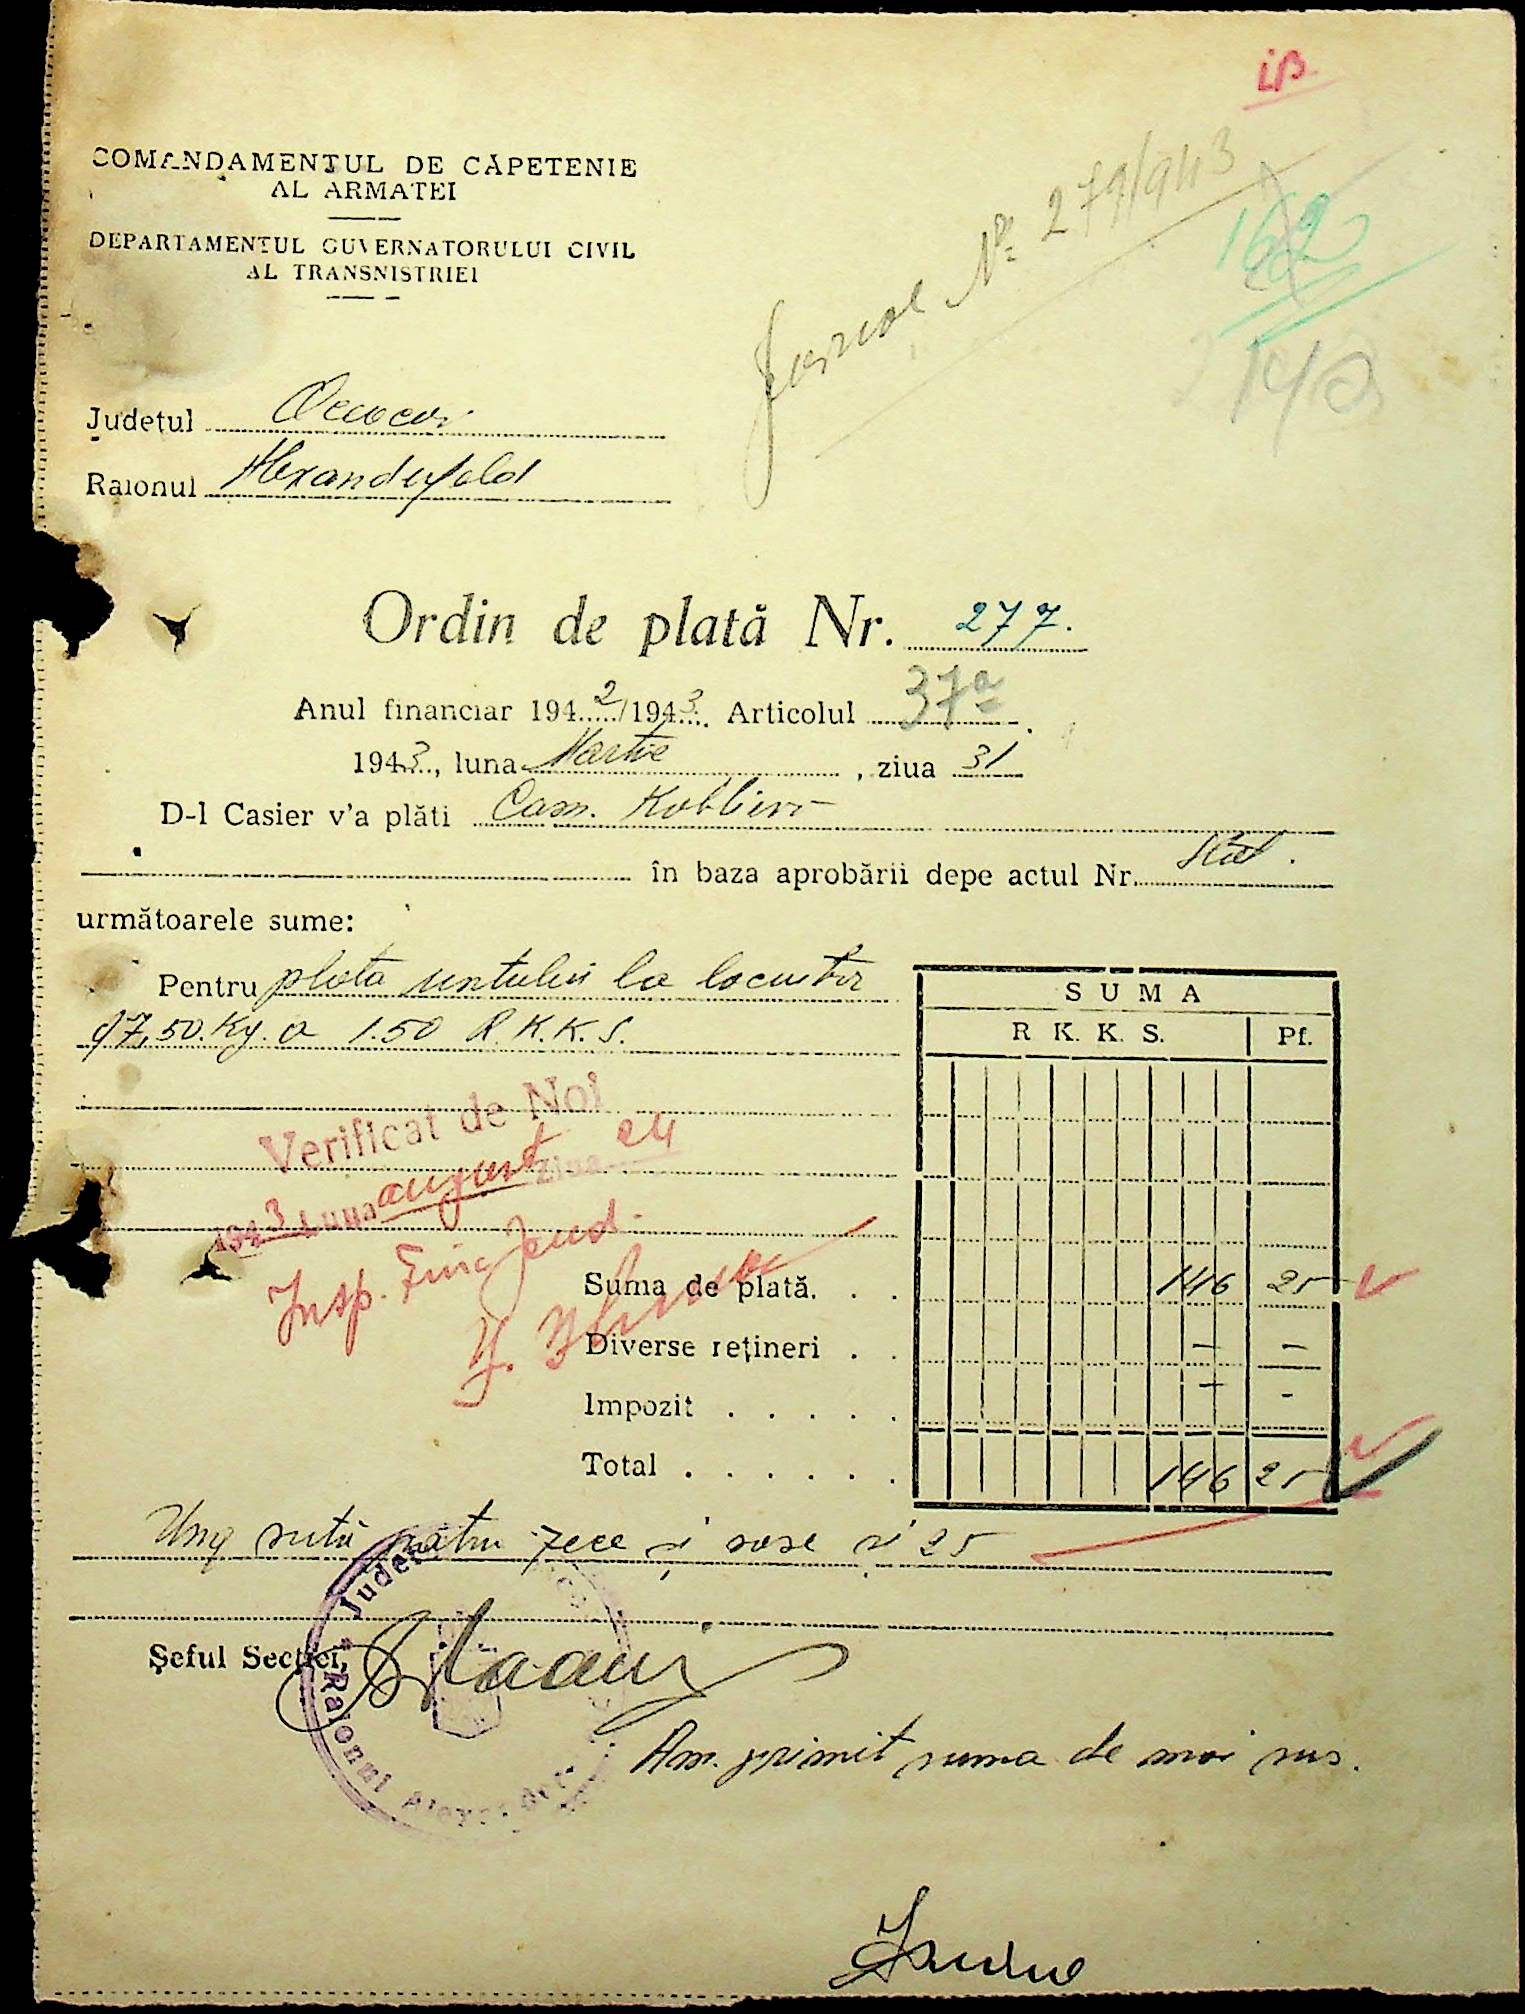 COMANDAMENTUL DE CĂPETENIE
AL ARMATEI
DEPARTAMENTUL GUVERNATORULUI CIVIL
AL TRANSNISTRIEI
Jurnal No 279/943
162
Județul
Raionul Alexanderfeld
Ordin de plată Nr. 277.
Anul financiar 1942/1943. Articolul 37a
1943, luna Martie, ziua 31
D-l Casier v'a plăti Com. Koblievo
în baza aprobării depe actul Nr. Stat.
următoarele sume:
Pentru plata untului la locuitor
97,50. Kg. a 1.50 R.K.K.S.
SUMA
R K. K. S. Pf.
Verificat de Noi
1943 Luna august ziua 24
Insp. Fin. Jud.
Suma de plată. . . 146 25
Diverse rețineri . . — —
Impozit . . . . . — -
Total . . . . . . 146 25
Una sută patru zece și șase și 25
Șeful Secției,
Județul
Raionul
Am primit suma de mai sus.